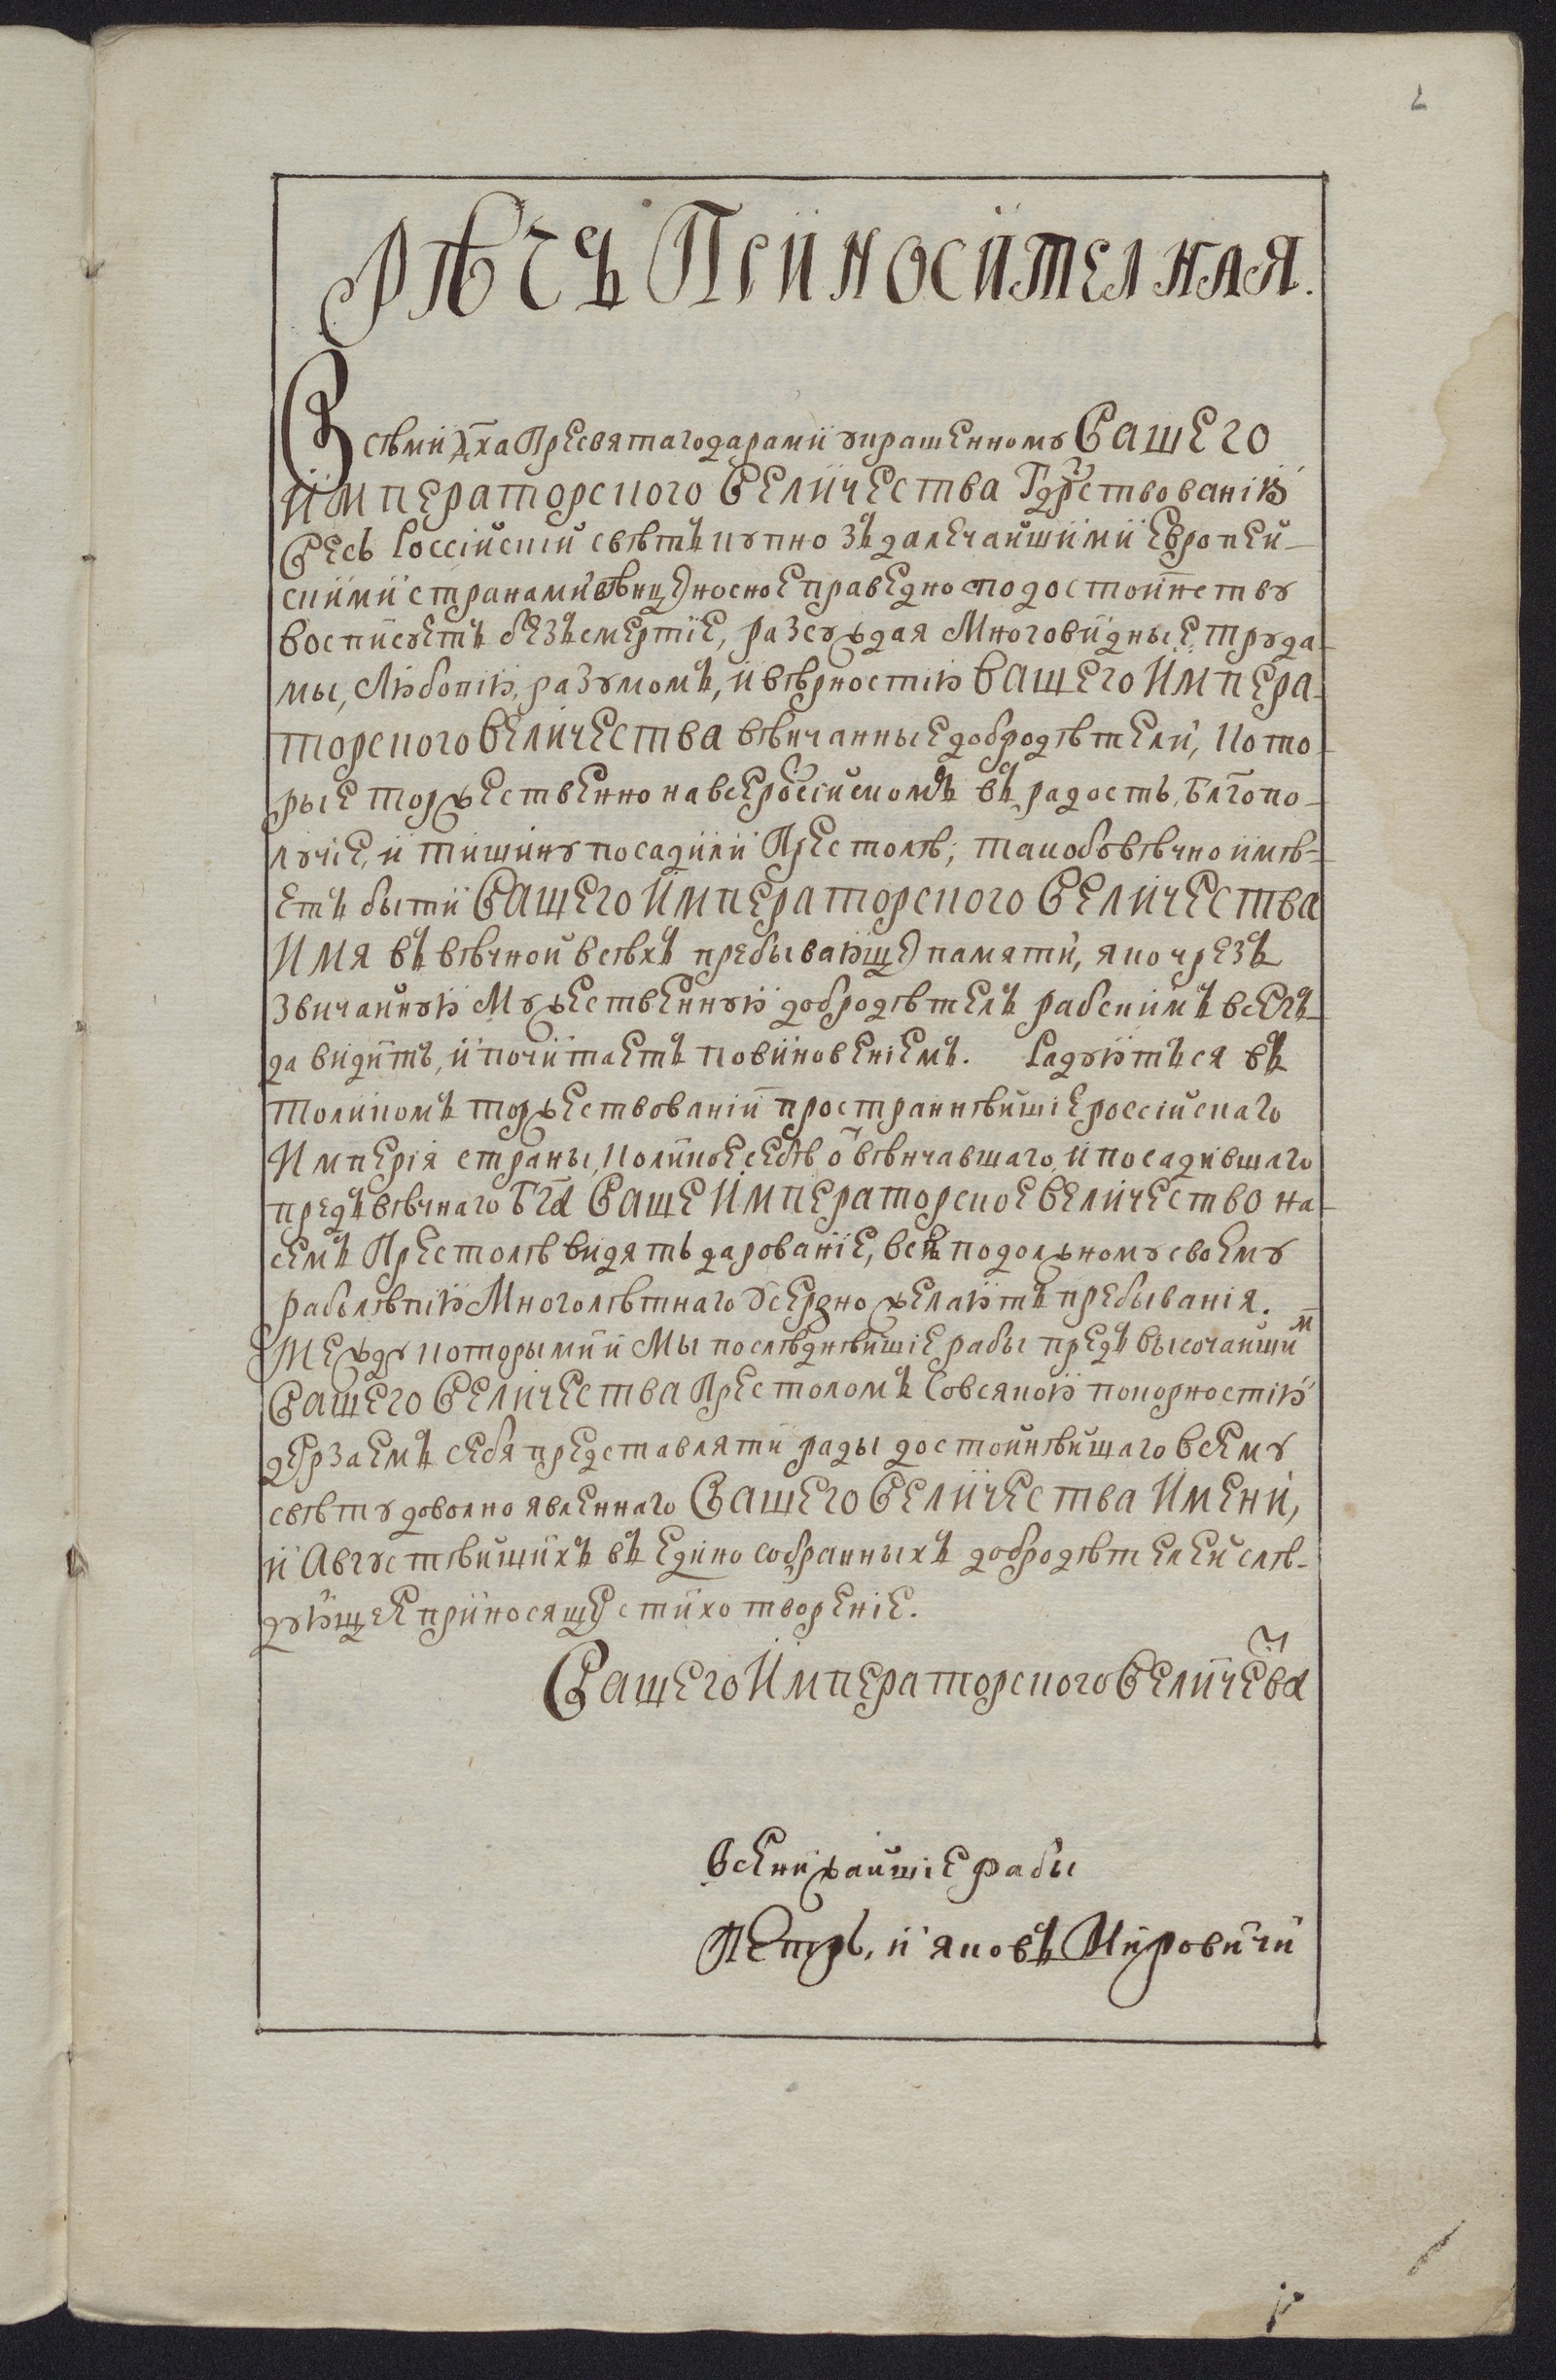 2
Рѣчь Приносителная.
Всѣми Дх҃а Пресвятаго дарами украшенному Вашего
Императорского Величества Гдрствованію
Весь Россійскій свѣтъ купно зъ далечайшими Европей-
скими странами вѣнценосное праведно по достоинству
восписуетъ безъсмертіе, разсуждая Многовидные, труда-
мы, Любовію, разумомъ, и вѣрностію Вашего Импера-
торского Величества вѣнчанные добродѣтели, кото-
рые торжественно на всеросійскомъ въ радость, бл҃гопо-
лучіе, и тишину посадили Престолѣ; такобъ вѣчно имѣ-
етъ быти Вашего Императорского Величества
Имя въ вѣчной всѣхъ пребывающе памяти, яко чрезъ
звичайную Мужественную добродѣтель рабскимъ всегъ-
да видитъ, и почитаетъ повиновеніемъ. Радуются въ
толикомъ торжествованіи пространнѣйшіе россійскаго
Имперія страны, коликое себѣ ѿ вѣнчавшаго, и посадившаго
предъвѣчнаго Бг҃а Ваше Императорское Величество на
семъ Престолѣ видять дарованіе, всѣ подолжному своему
раболѣпію Многолѣтнаго усердно желаютъ пребыванія.
Между которыми и Мы послѣднѣйшіе рабы предъ высочайшим
Вашего Величества Престоломъ Совсякою покорностію
дерзаемъ себя представляти рады достойнѣйшаго всему
свѣту доволно явленнаго Вашего Величества Имени,
и Августѣйшихъ въ едино собранныхъ добродѣтелей слѣ-
дующее приносяще стихотвореніе.
Вашего Императорского Величева
всенижайшіе раби
Петръ, и Яковъ Мировичи